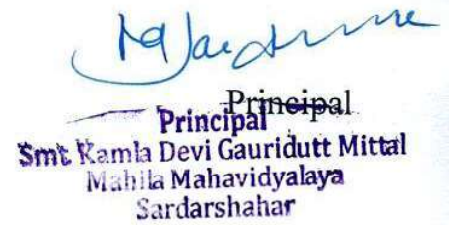 Principal
Principal
Smt Kamla Devi Gauridutt Mittal
Mahila Mahavidyalaya
Sardarshahar